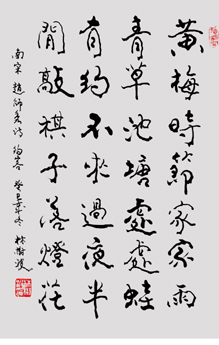 黃梅時節家家雨
青草池塘處處蛙
有約不來過夜半
閒敲棋子落燈花
南宋 趙師秀詩 約客